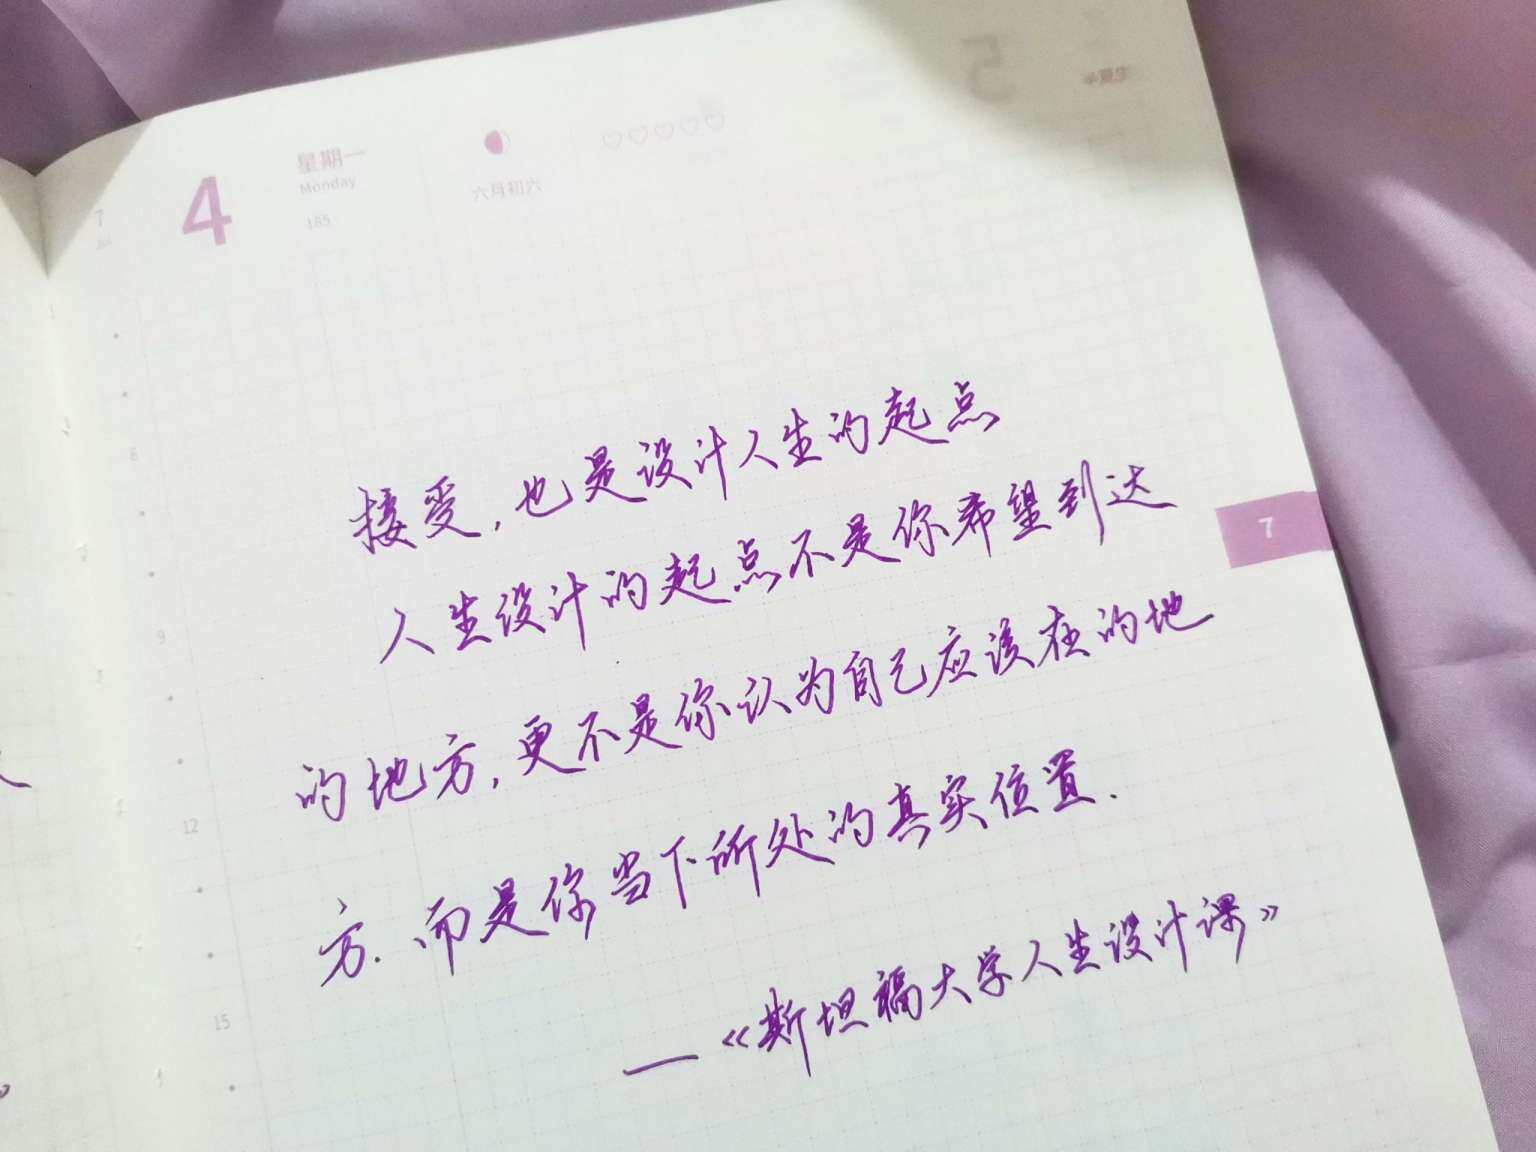 7
4
星期一
Monday
185
六月初六
5
接受,也是设计人生的起点
人生设计的起点不是你希望到达
的地方,更不是你认为自己应该在的地
方.而是你当下所处的真实位置.
—《斯坦福大学人生设计课》
7
6
9
12
15